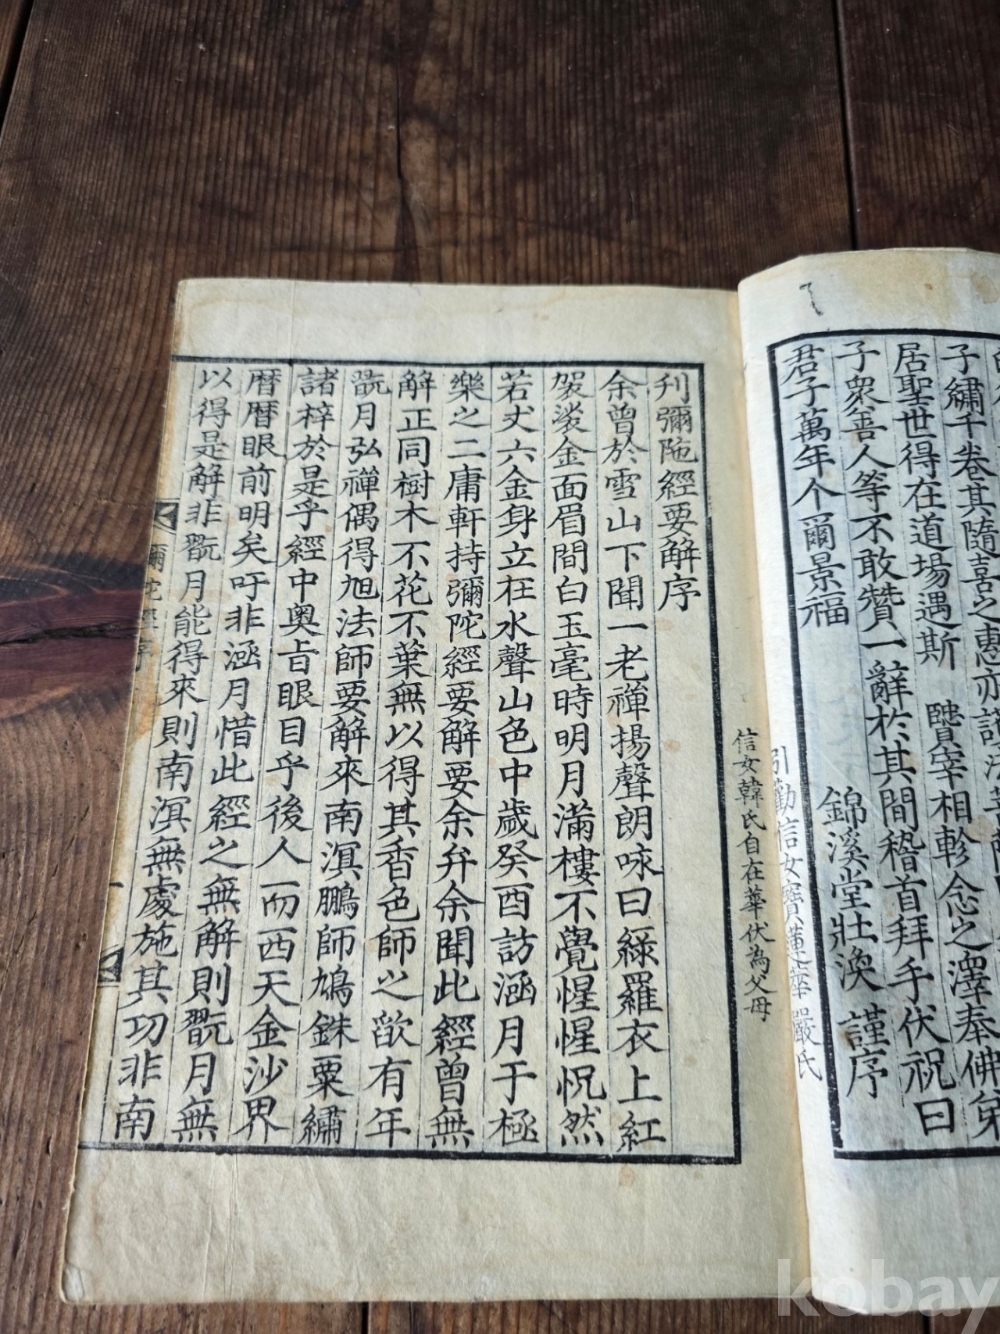 子繡千卷其隨喜之惠亦
居聖世得在道場遇斯 賢宰相軫念之澤奉佛弟
子衆善人等不敢贊一辭於其間稽首拜手伏祝曰
君子萬年介爾景福 錦溪堂壯渙 謹序
引勸信女寶蓮華嚴氏
信女韓氏自在華伏為父母
刋彌陁經要解序
余曾於雪山下聞一老禪揚聲朗咏曰綠羅衣上紅
袈裟金面眉間白玉毫時明月滿樓不覺惺惺怳然
若丈六金身立在水聲山色中歲癸酉訪涵月于極
樂之二庸軒持彌陀經要解要余弁余聞此經曾無
解正同樹木不花不葉無以得其香色師之欲有年
翫月弘禪偶得旭法師要解來南溟鵬師鳩銖粟繡
諸梓於是乎經中奧旨眼目乎後人一而西天金沙界
曆曆眼前明矣吁非涵月惜此經之無解則翫月無
以得是解非翫月能得來則南溟無處施其功非南
彌陀經序
一
kobay